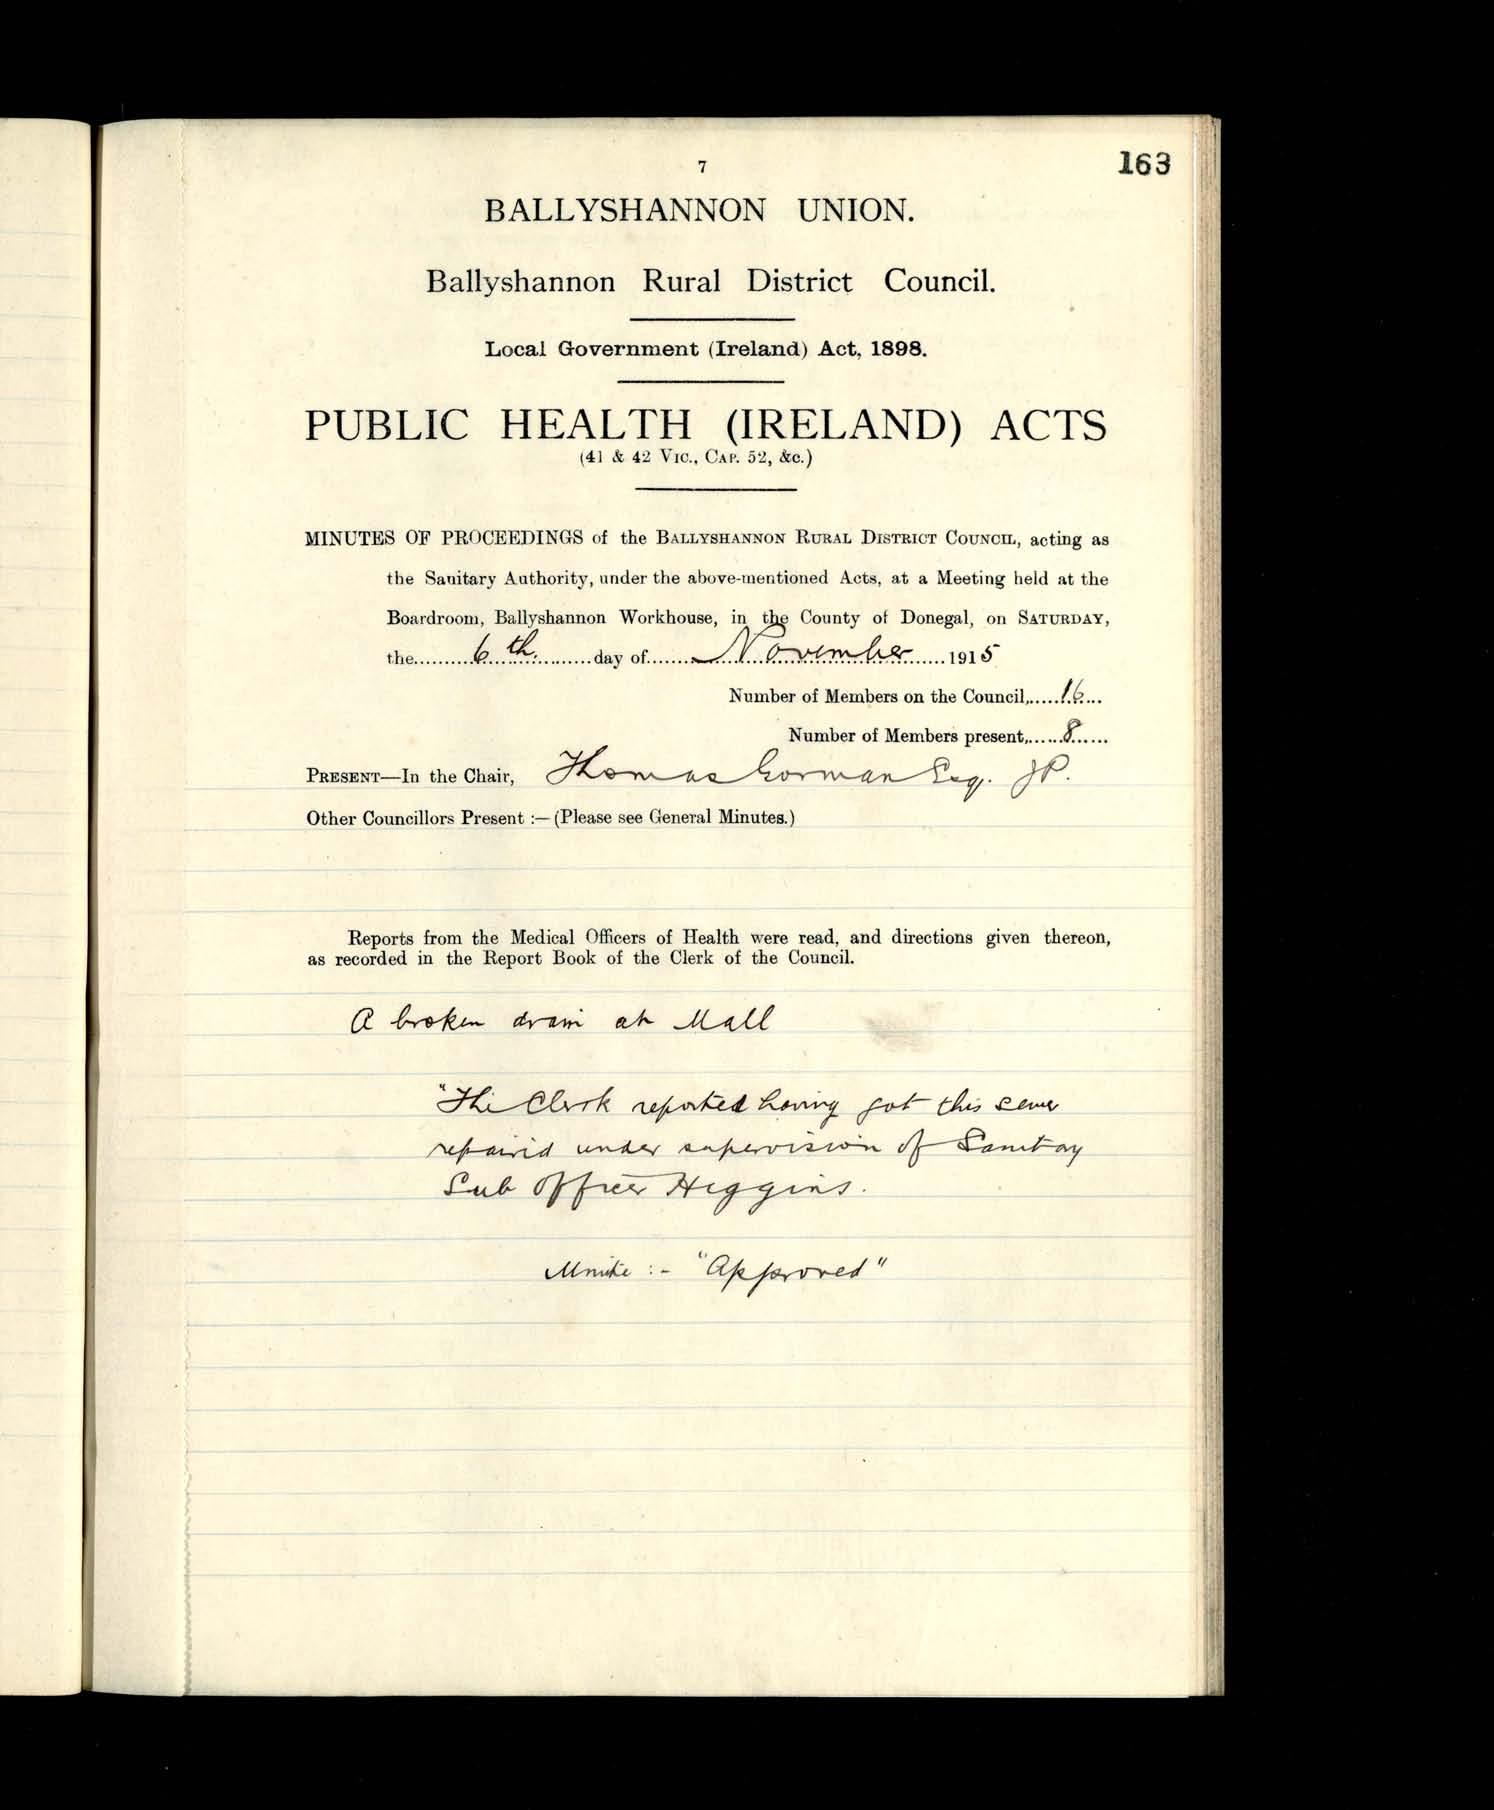 163
7
BALLYSHANNON UNION.
Ballyshannon Rural District Council.
Local Government (Ireland) Act, 1898.
PUBLIC HEALTH (IRELAND) ACTS
(41 & 42 Vic., Cap. 52, &c.)
MINUTES OF PROCEEDINGS of the Ballyshannon Rural District Council, acting as
the Sanitary Authority, under the above-mentioned Acts, at a Meeting held at the
Boardroom, Ballyshannon Workhouse, in the County of Donegal, on Saturday,
the..........6th..........day of.......November.......1915
Number of Members on the Council,.....16...
Number of Members present,......8......
Present—In the Chair, Thomas Gorman Esq. JP.
Other Councillors Present :—(Please see General Minutes.)
Reports from the Medical Officers of Health were read, and directions given thereon,
as recorded in the Report Book of the Clerk of the Council.
A broken drain at Mall
"The Clerk reported having got this sewer
repaired under supervision of Sanitary
Sub Officer Higgins.
Minute :- "Approved"